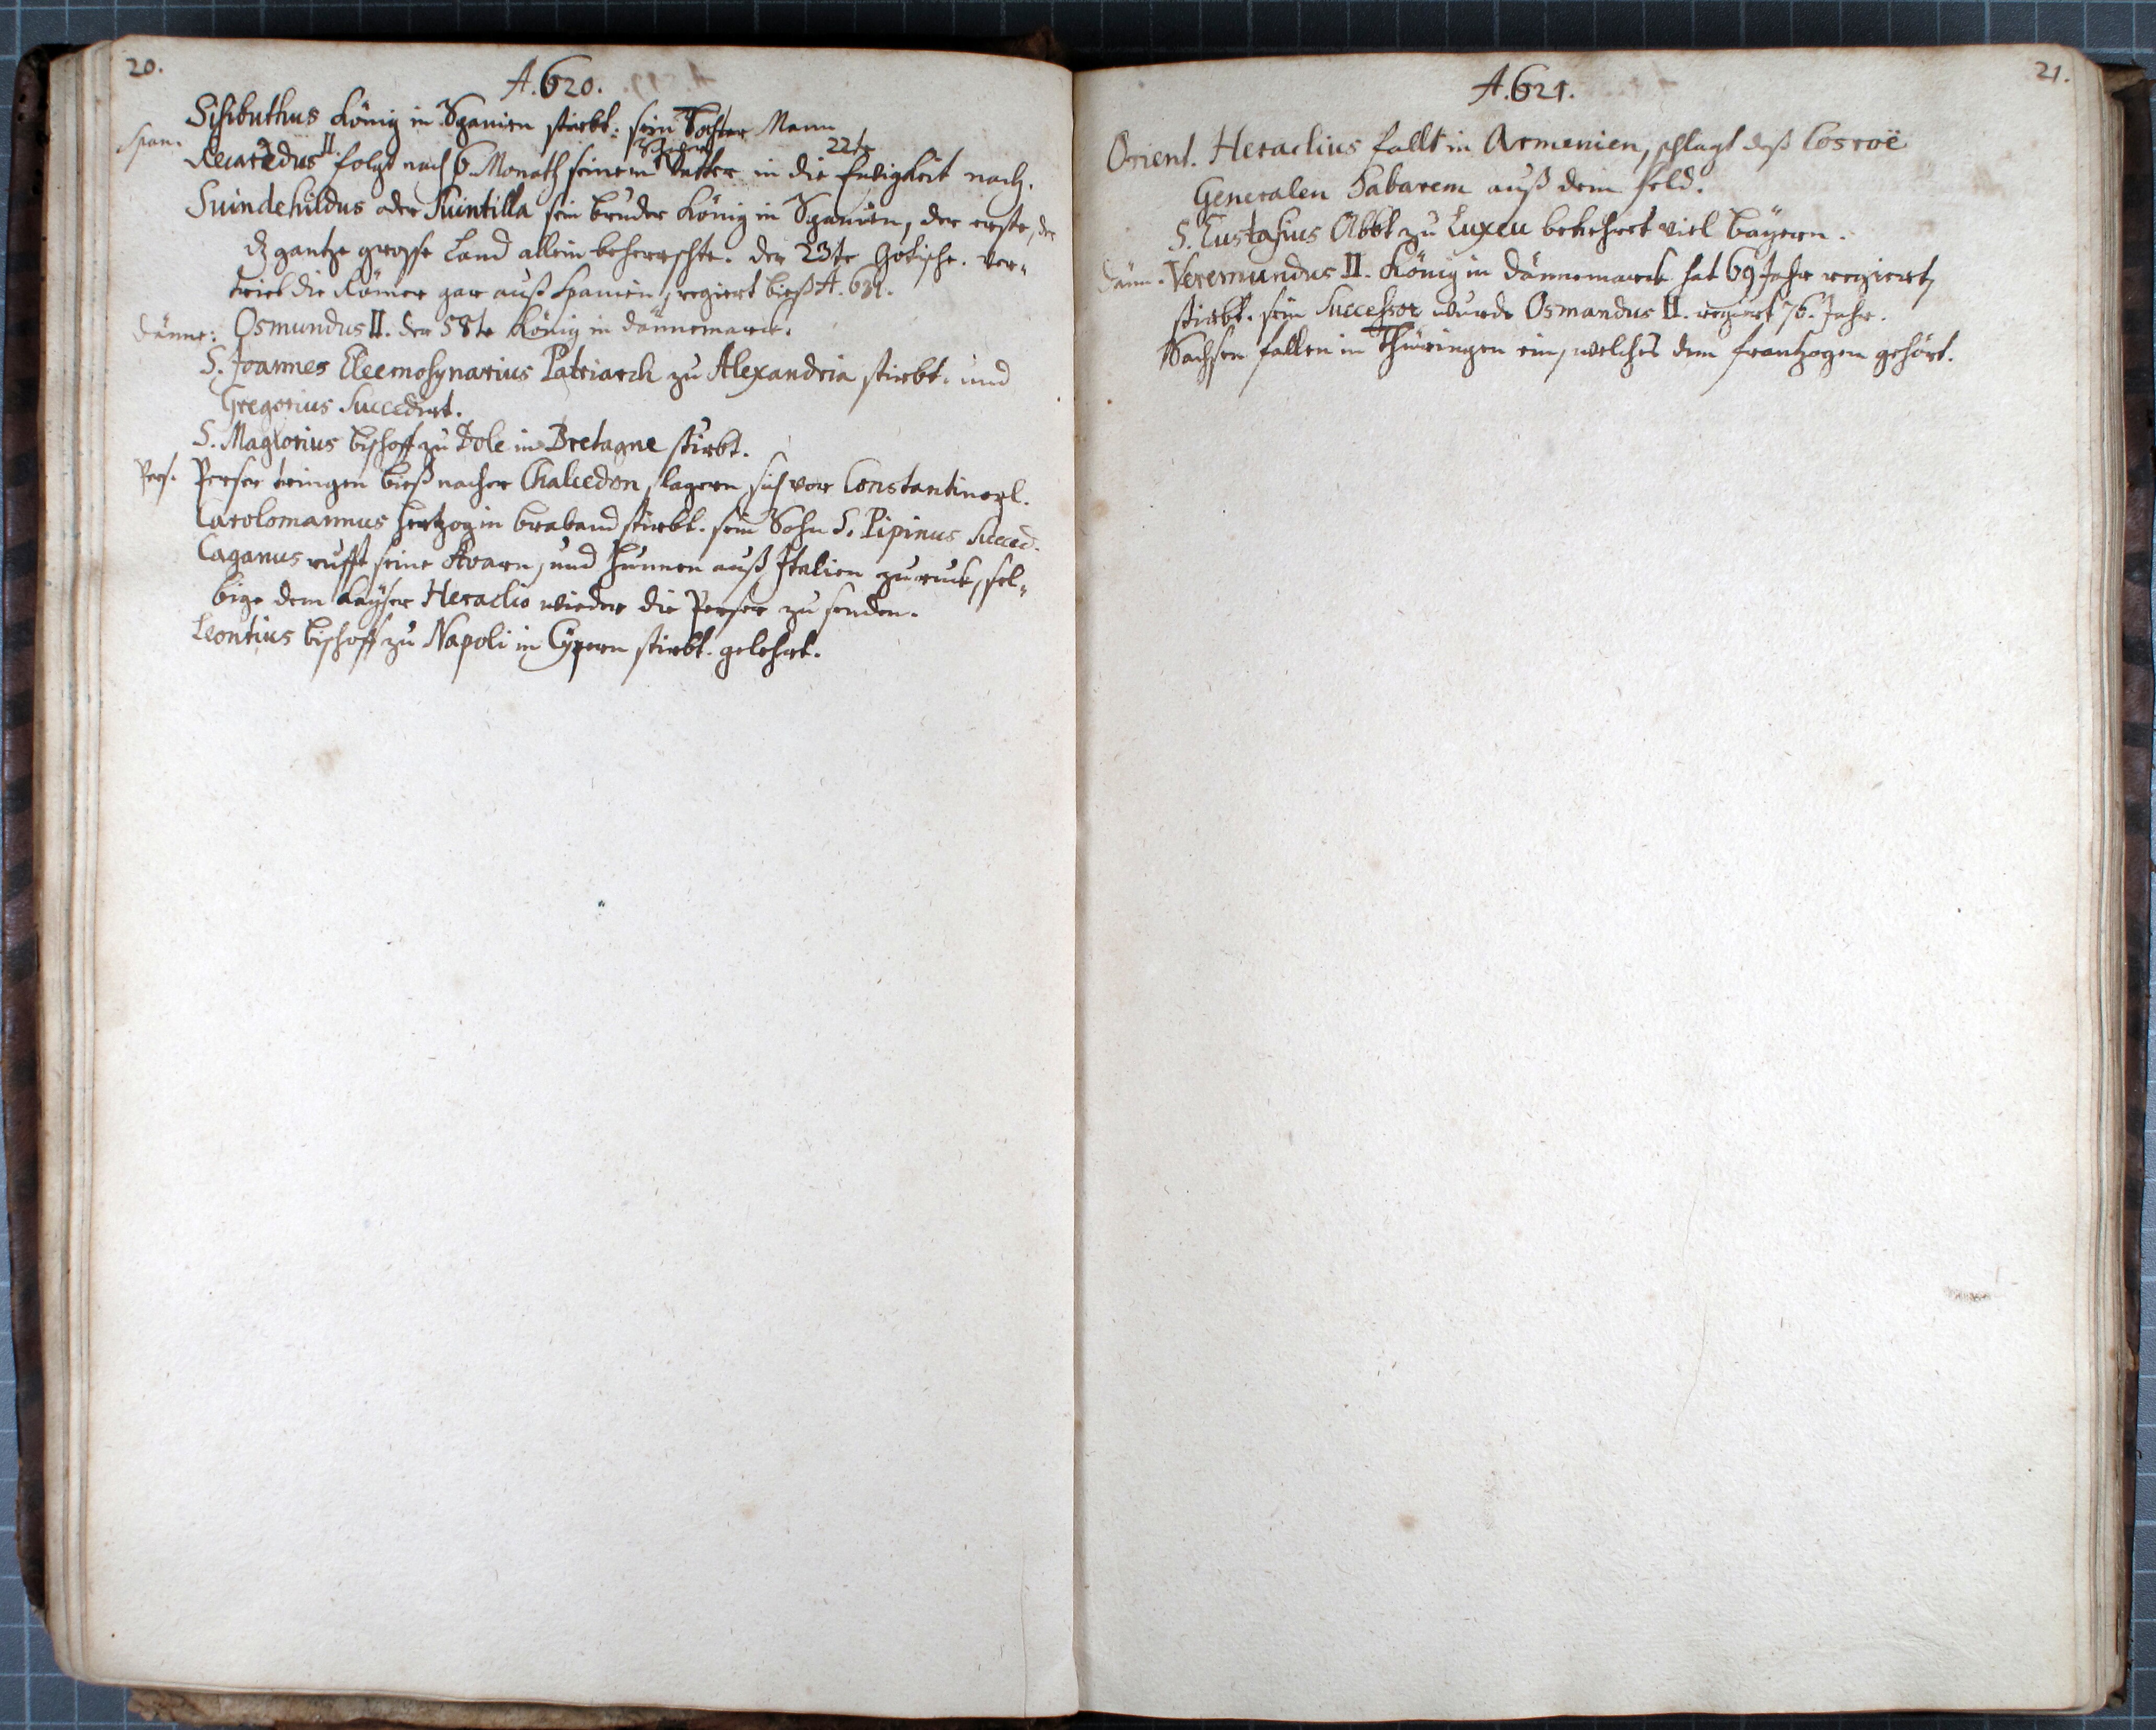 20.
A. 620.
Span. Sisibuthus König in Spanien stirbt: sein Tochter Mann
Schwer 22te
Recaredus II. folgt nach 6 Monath seinem Vatter in die Ewigkeit nach.
Suindehildus oder Suintilla sein bruder König in Spanien, der erste, der
dz gantze grosse Land allein beherrschte. der 23te Gotische. ver=
trieb die Römer gar auß Spanien, regiert bieß A. 631.
Dänne: Osmundus II. der 58te König in Dännemarck.
S. Joannes Eleemosynarius Patriarch zu Alexandria stirbt. und
Gregorius Succedirt.
S. Maglorius bischoff zu Dole in Bretagne stirbt.
Pers. Perser tringen bieß nacher Chalcedon, lagern sich vor Constantinopl.
Carolomannus Hertzog in braband stirbt. sein Sohn S. Pipinus Succed.
Caganus rufft seine Avarn, und Hunnen auß Italien zuruck, sel=
bige dem Kayser Heraclio wieder die Perser zu senden.
Leontius bischoff zu Napoli in Cypern stirbt. gelehrt.
21.
A. 621.
Orient. Heraclius fallt in Armenien, schlagt deß Cosroë
Generalen Sabarem auß dem feld.
S. Eustasius Abbt zu Luxeu bekehrt viel bäyern.
Dänn. Veremundus II. König in Dännemarck hat 69 Jahr regiert,
stirbt. sein Successor wurde Osmandus II. regiert 76. Jahr.
Sachsen fallen in Thüringen ein, welches dem frantzosen gehört.